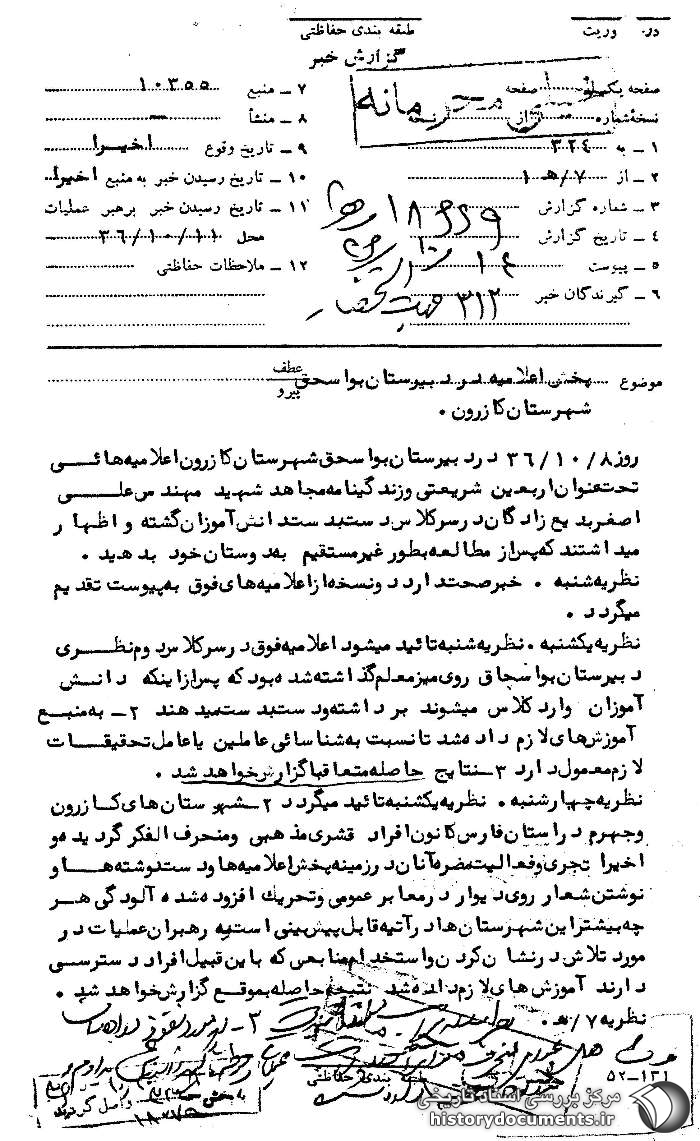 طبقه بندی حفاظتی
گزارش خبر
صفحه یک از صفحه
نسخهٔ شماره از نسخه
۱ ـ به ۳۲۴
۲ ـ از ۷/هـ ۱
۳ ـ شماره گزارش ۱۸۶۶۹
۴ ـ تاریخ گزارش
۵ ـ پیوست
۶ ـ گیرندگان خبر ۳۱۲
۷ ـ منبع ۱۰۳۵۵
۸ ـ منشأ ـ
۹ ـ تاریخ وقوع اخیرا
۱۰ ـ تاریخ رسیدن خبر به منبع اخیرا
۱۱ ـ تاریخ رسیدن خبر برهبر عملیات
محل ۳۶/۱۰/۱۱
۱۲ ـ ملاحظات حفاظتی
موضوع پخش اعلامیه در دبیرستان بواسحق
عطف
پیرو
شهرستان کازرون .
روز ۳۶/۱۰/۸ در دبیرستان بواسحق شهرستان کازرون اعلامیه هائی
تحت عنوان اربعین شریعتی و زندگینامه مجاهد شهید مهندس علی
اصغر بدیع زادگان در سر کلاس دست بدست دانش آموزان گشته و اظهار
میداشتند که پس از مطالعه بطور غیر مستقیم به دوستان خود بدهید .
نظریه شنبه . خبر صحت دارد دو نسخه از اعلامیه های فوق به پیوست تقدیم
میگردد .
نظریه یکشنبه . نظریه شنبه تائید میشود اعلامیه فوق در سر کلاس دوم نظری
دبیرستان بواسحاق روی میز معلم گذاشته شده بود که پس از اینکه دانش
آموزان وارد کلاس میشوند برداشته و دست بدست میدهند ۲ـ به منبع
آموزش های لازم داده شد تا نسبت به شناسائی عاملین یا عامل تحقیقات
لازم معمول دارد ۳ـ نتایج حاصله متعاقبا گزارش خواهد شد .
نظریه چهارشنبه . نظریه یکشنبه تائید میگردد ۲ـ شهرستان های کازرون
و جهرم در استان فارس کانون افراد قشری مذهبی و منحرف الفکر گردیده و
اخیرا تجری و فعالیت مضره آنان در زمینه پخش اعلامیه ها و دست نوشته ها و
نوشتن شعار روی دیوار در معابر عمومی و تحریک افزوده شده آلودگی هر
چه بیشتر این شهرستان ها در آتیه قابل پیش بینی است به رهبران عملیات در
مورد تلاش در نشان کردن و استخدام منابعی که با این قبیل افراد دسترسی
دارند آموزش های لازم داده شد نتیجه حاصله بموقع گزارش خواهد شد .
نظریه ۷/هـ .
طبقه بندی حفاظتی
۵۲ـ۱۳۱
به بخش
واصل گردید
مرکز بررسی اسناد تاریخی
historydocuments.ir